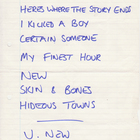 HERE'S WHERE THE STORY ENDS
I KICKED A BOY
CERTAIN SOMEONE
MY FINEST HOUR
NEW
SKIN & BONES
HIDEOUS TOWNS
V. NEW